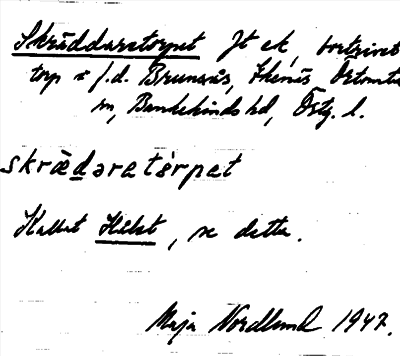 Skräddaretorpet Jt ek, bortrivet
torp u f.d. Brunsnäs, Ekenäs Östantill
sn, Bankekinds hd, Östg. l.
skrædaretɷrpet
Kallat Hålet, se detta.
Maja Nordlund 1947.